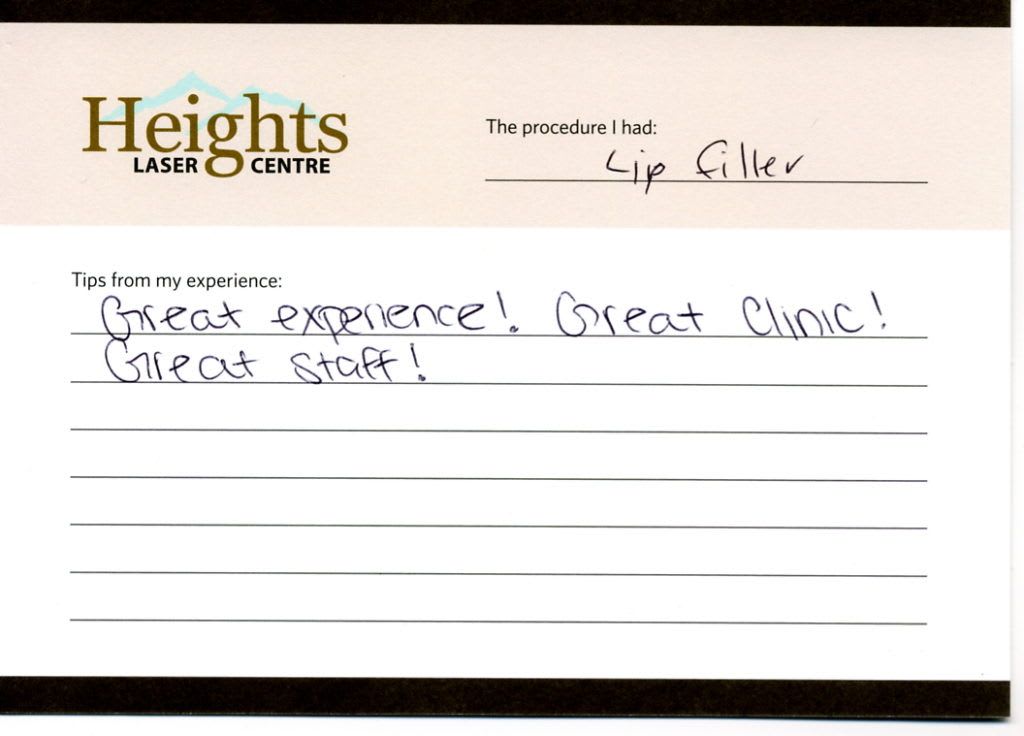 Heights
LASER CENTRE
The procedure I had:
Lip filler
Tips from my experience:
Great experience! Great Clinic!
Great staff!